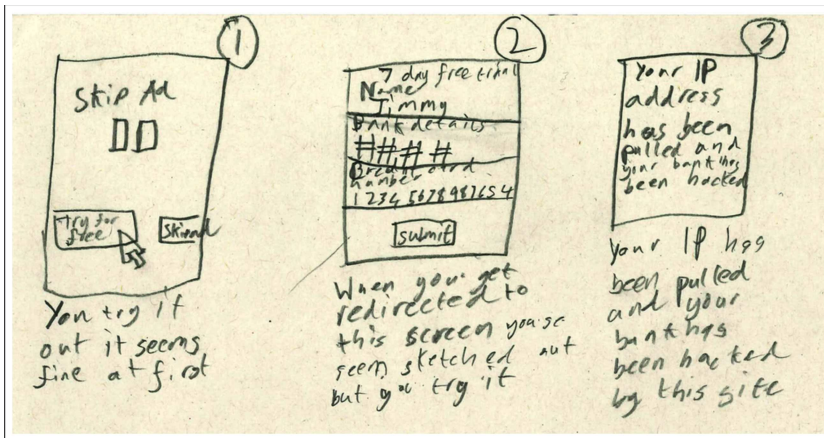 1
Skip Ad
Try for
free
Skip ad
You try it
out it seems
fine at first
2
7 day free trial
Name
Jimmy
Bank details
# # # #
number
1234 5678987654
submit
When you get
redirected to
this screen you
seem sketched out
but you try it
3
Your IP
address
has been
pulled and
your bank has
been hacked
Your IP has
been pulled
and your
bank has
been hacked
by this site